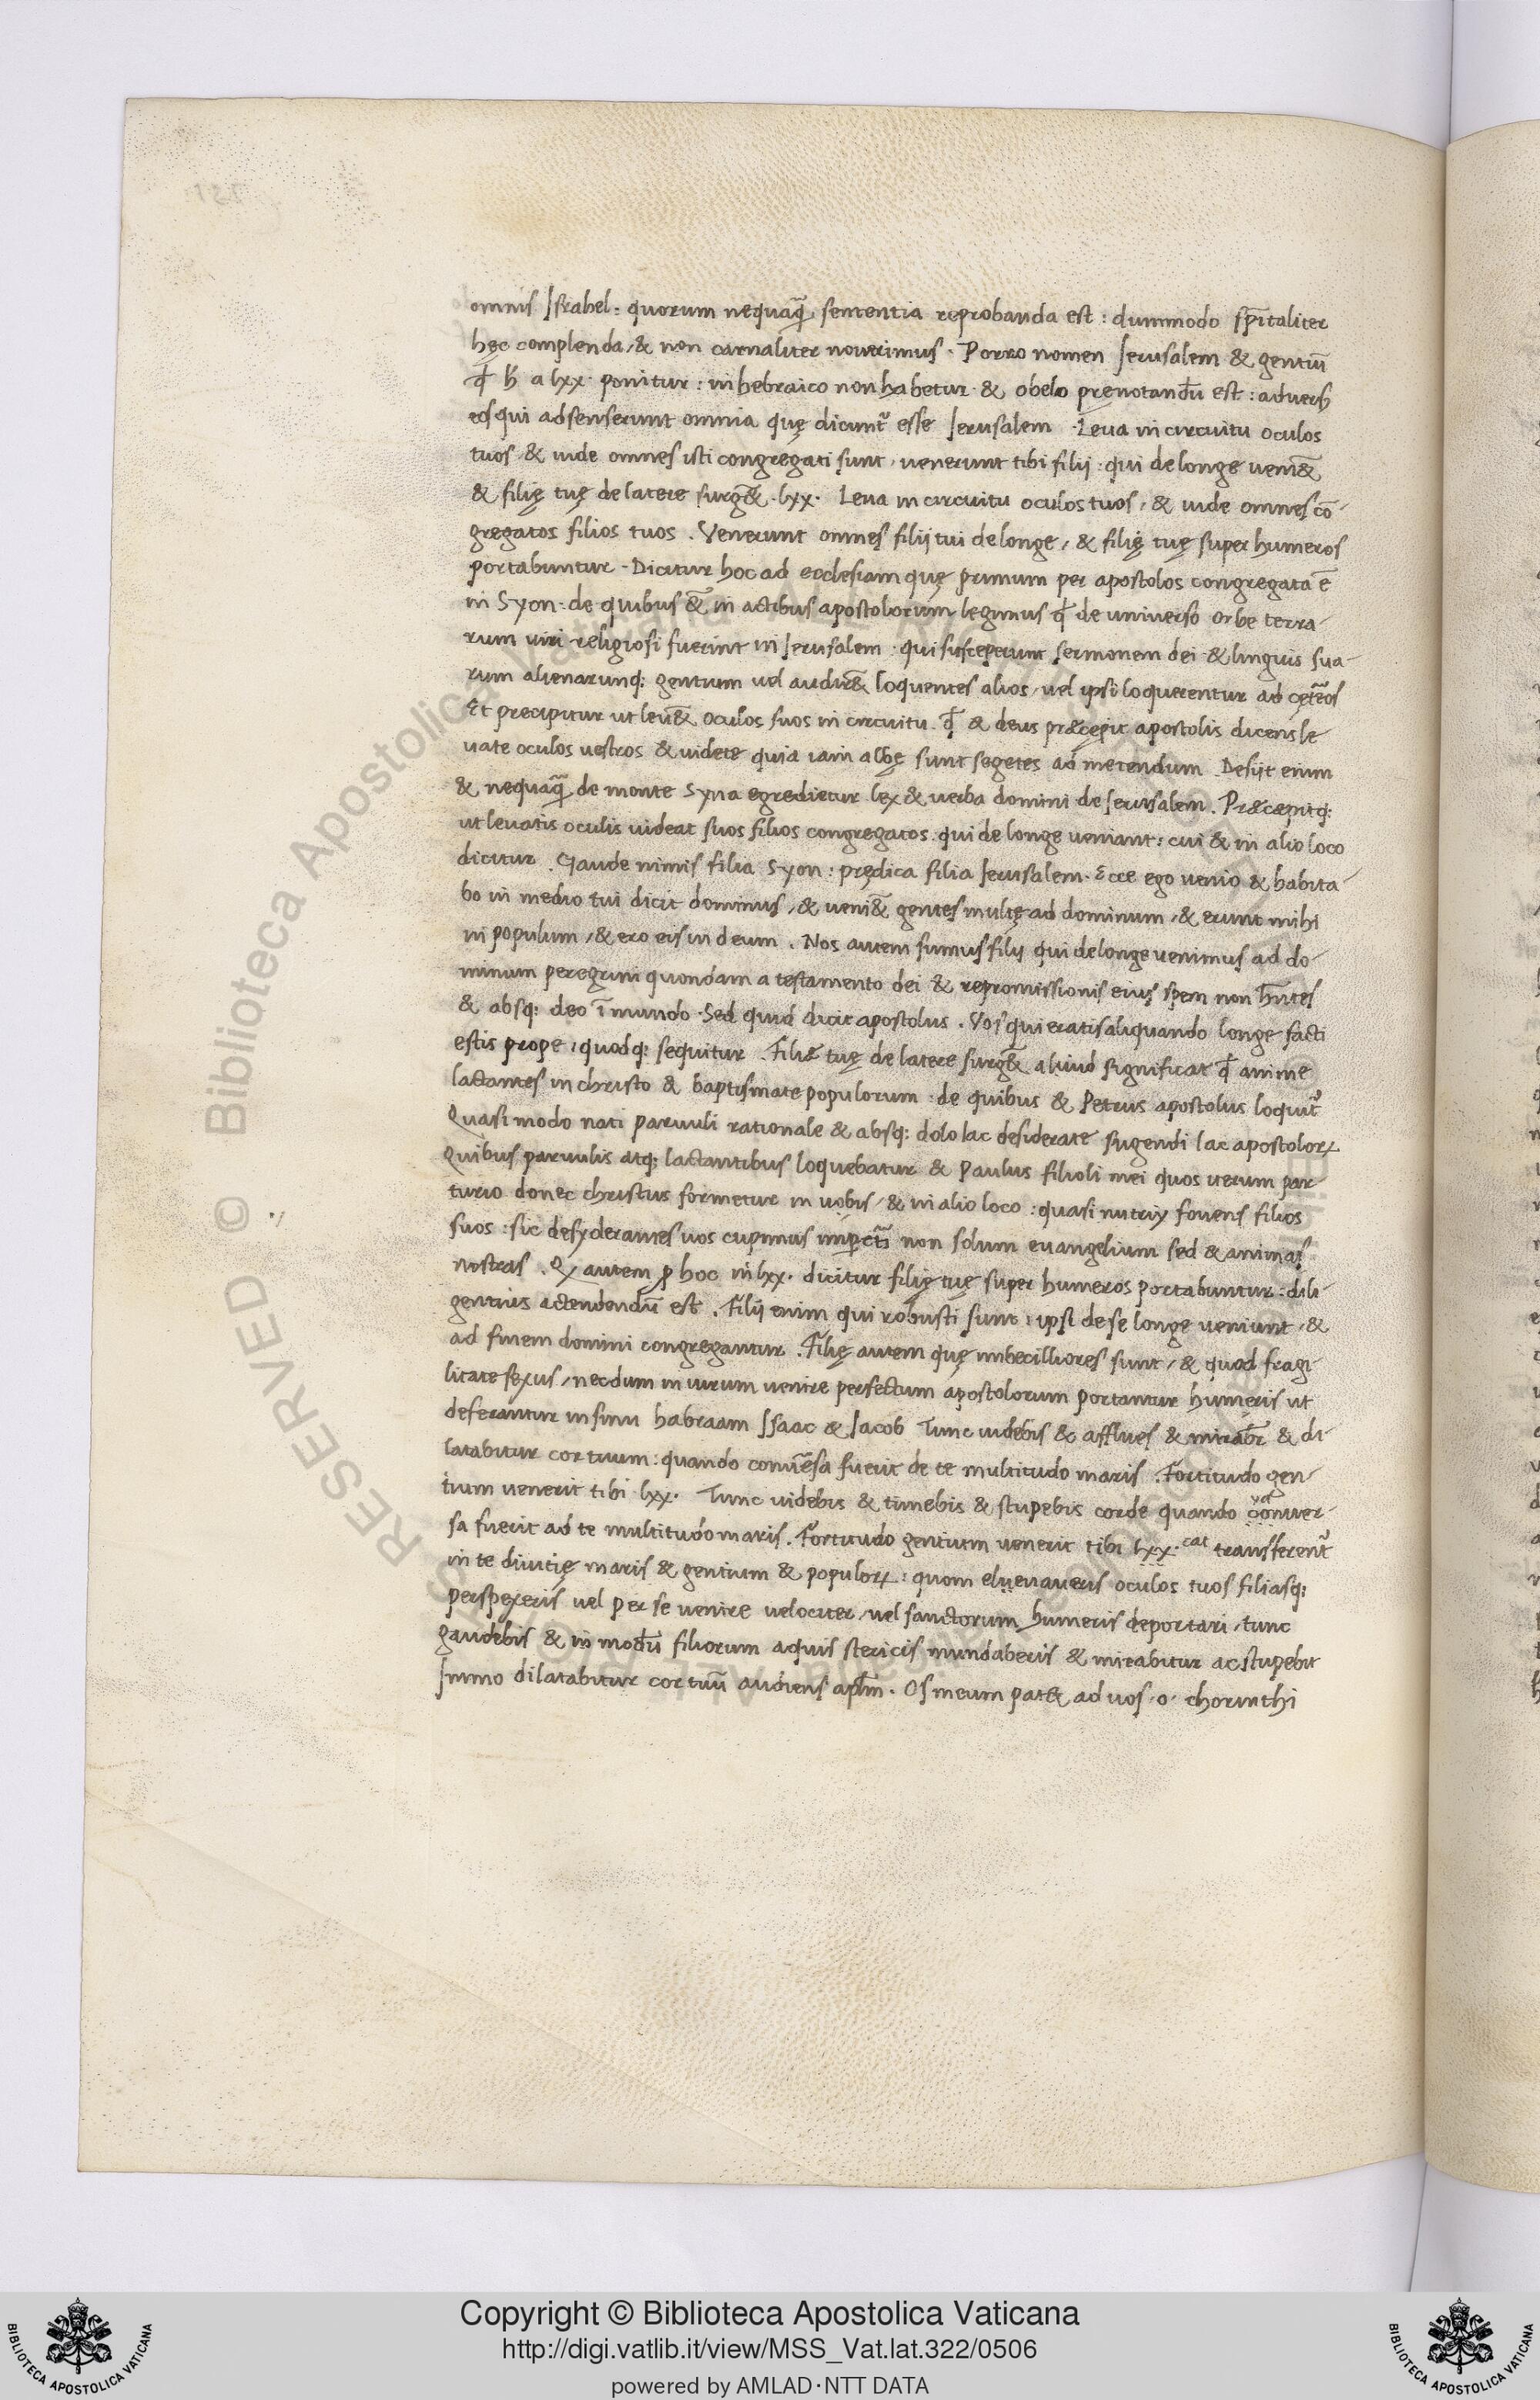 omnis Israhel: quorum nequaq̃ sententia reprobanda est: dummodo sp̃italiter
hęc complenda, & non carnaliter nouerimus. Porro nomen Ierusalem & gentiū
qđ ħ a lxx ponitur: in hebraico non habetur & obelo prenotandū est: aduersꝰ
eos qui adsenserunt omnia quę dicunt᷑ esse Ierusalem. Leua in circuitu oculos
tuos & uide omnes isti congregati sunt, uenerunt tibi filij: qui de longe ueni&̃
& filię tuę de latere surg&̃. lxx. Leua in circuitu oculos tuos, & uide omnes cō-
gregatos filios tuos. Venerunt omnes filij tui de longe, & filię tuę super humeros
portabuntur. Dicitur hoc ad ecclesiam quę primum per apostolos congregata ē
in Syon. de quibus &̃ in actibus apostolorum legimus qđ de uniuerso orbe terra-
rum uiri religiosi fuerint in Ierusalem: qui susceperunt sermonem dei & linguis sua-
rum alienarunq: gentium uel audir&̃ loquentes alios, uel ipsi loquerentur ad cęt̃os
Et precipitur ut leu&̃ oculos suos in circuitu. qđ & deus præcepit apostolis dicens le
uate oculos uestros & uidete quia iam albę sunt segetes ad metendum. Desijt enim
& nequaq̃ de monte Syna egredietur lex & uerba domini de Ierusalem. Præcepitq:
ut leuatis oculis uideat suos filios congregatos. qui de longe ueniant: cui & in alio loco
dicitur. Gaude nimis filia Syon: prędica filia Ierusalem. Ecce ego uenio & habita-
bo in medio tui dicit dominus, & ueni&̃ gentes multę ad dominum, & erunt mihi
in populum, & ero eis in deum. Nos autem sumus filij qui de longe uenimus ad do-
minum peregrini quondam a testamento dei & repromissionis eius spem non hñtes
& absq: deo ī mundo. Sed quid dicit apostolus. Vos qui eratis aliquando longe facti
estis prope, quodq: sequitur. Filiæ tuę de latere surg&̃ aliud significat qđ anime
lactantes in christo & baptismate populorum: de quibus & Petrus apostolus loquit᷑
Quasi modo nati paruuli rationale & absq: dolo lac desiderate sugendi lac apostolorꝝ
Quibus paruulis atq: lactantibus loquebatur & Paulus filioli mei quos iterum par-
turio donec christus formetur in uobis, & in alio loco: quasi nutrix fouens filios
suos: sic desyderantes uos cupimus non solum euangelium sed & animas
nostras. Qꝫ autem ꝓ hoc in lxx. dicitur filię tuę super humeros portabuntur: dili-
gentius actendendū est. Filij enim qui robusti sunt: ipsi de se longe ueniunt, &
ad finem domini congregantur. Filię autem quę imbecilliores sunt, & quod fragi-
litate sexus, necdum in uirum uenire perfectum apostolorum portantur humeris ut
deferantur in sinu habraam Isaac & Iacob Tunc uidebis & afflues & mirab̄r & di-
latabitur cor tuum: quando conuẽsa fuerit de te multitudo maris. Fortitudo gen-
tium uenerit tibi. lxx. Tunc uidebis & timebis & stupebis corde quando conuer-
sa fuerit ad te multitudo maris. Fortitudo gentium uenerit tibi lxx. transferent᷑
in te diuitię maris & gentium & populorꝝ: quom eleuaueris oculos tuos filiasq:
perspexeris uel per se uenire uelociter, uel sanctorum humeris deportari, tunc
gaudebis & in modū filiorum aquis stericis mundaberis & mirabitur ac stupebit
Immo dilatabitur cor tuū audiens apłm. Os meum pat& ad uos. o. chorinthi
RESERVED © Biblioteca Apostolica Vaticana
Copyright © Biblioteca Apostolica Vaticana
http://digi.vatlib.it/view/MSS_Vat.lat.322/0506
powered by AMLAD·NTT DATA
BIBLIOTECA APOSTOLICA VATICANA
BIBLIOTECA APOSTOLICA VATICANA